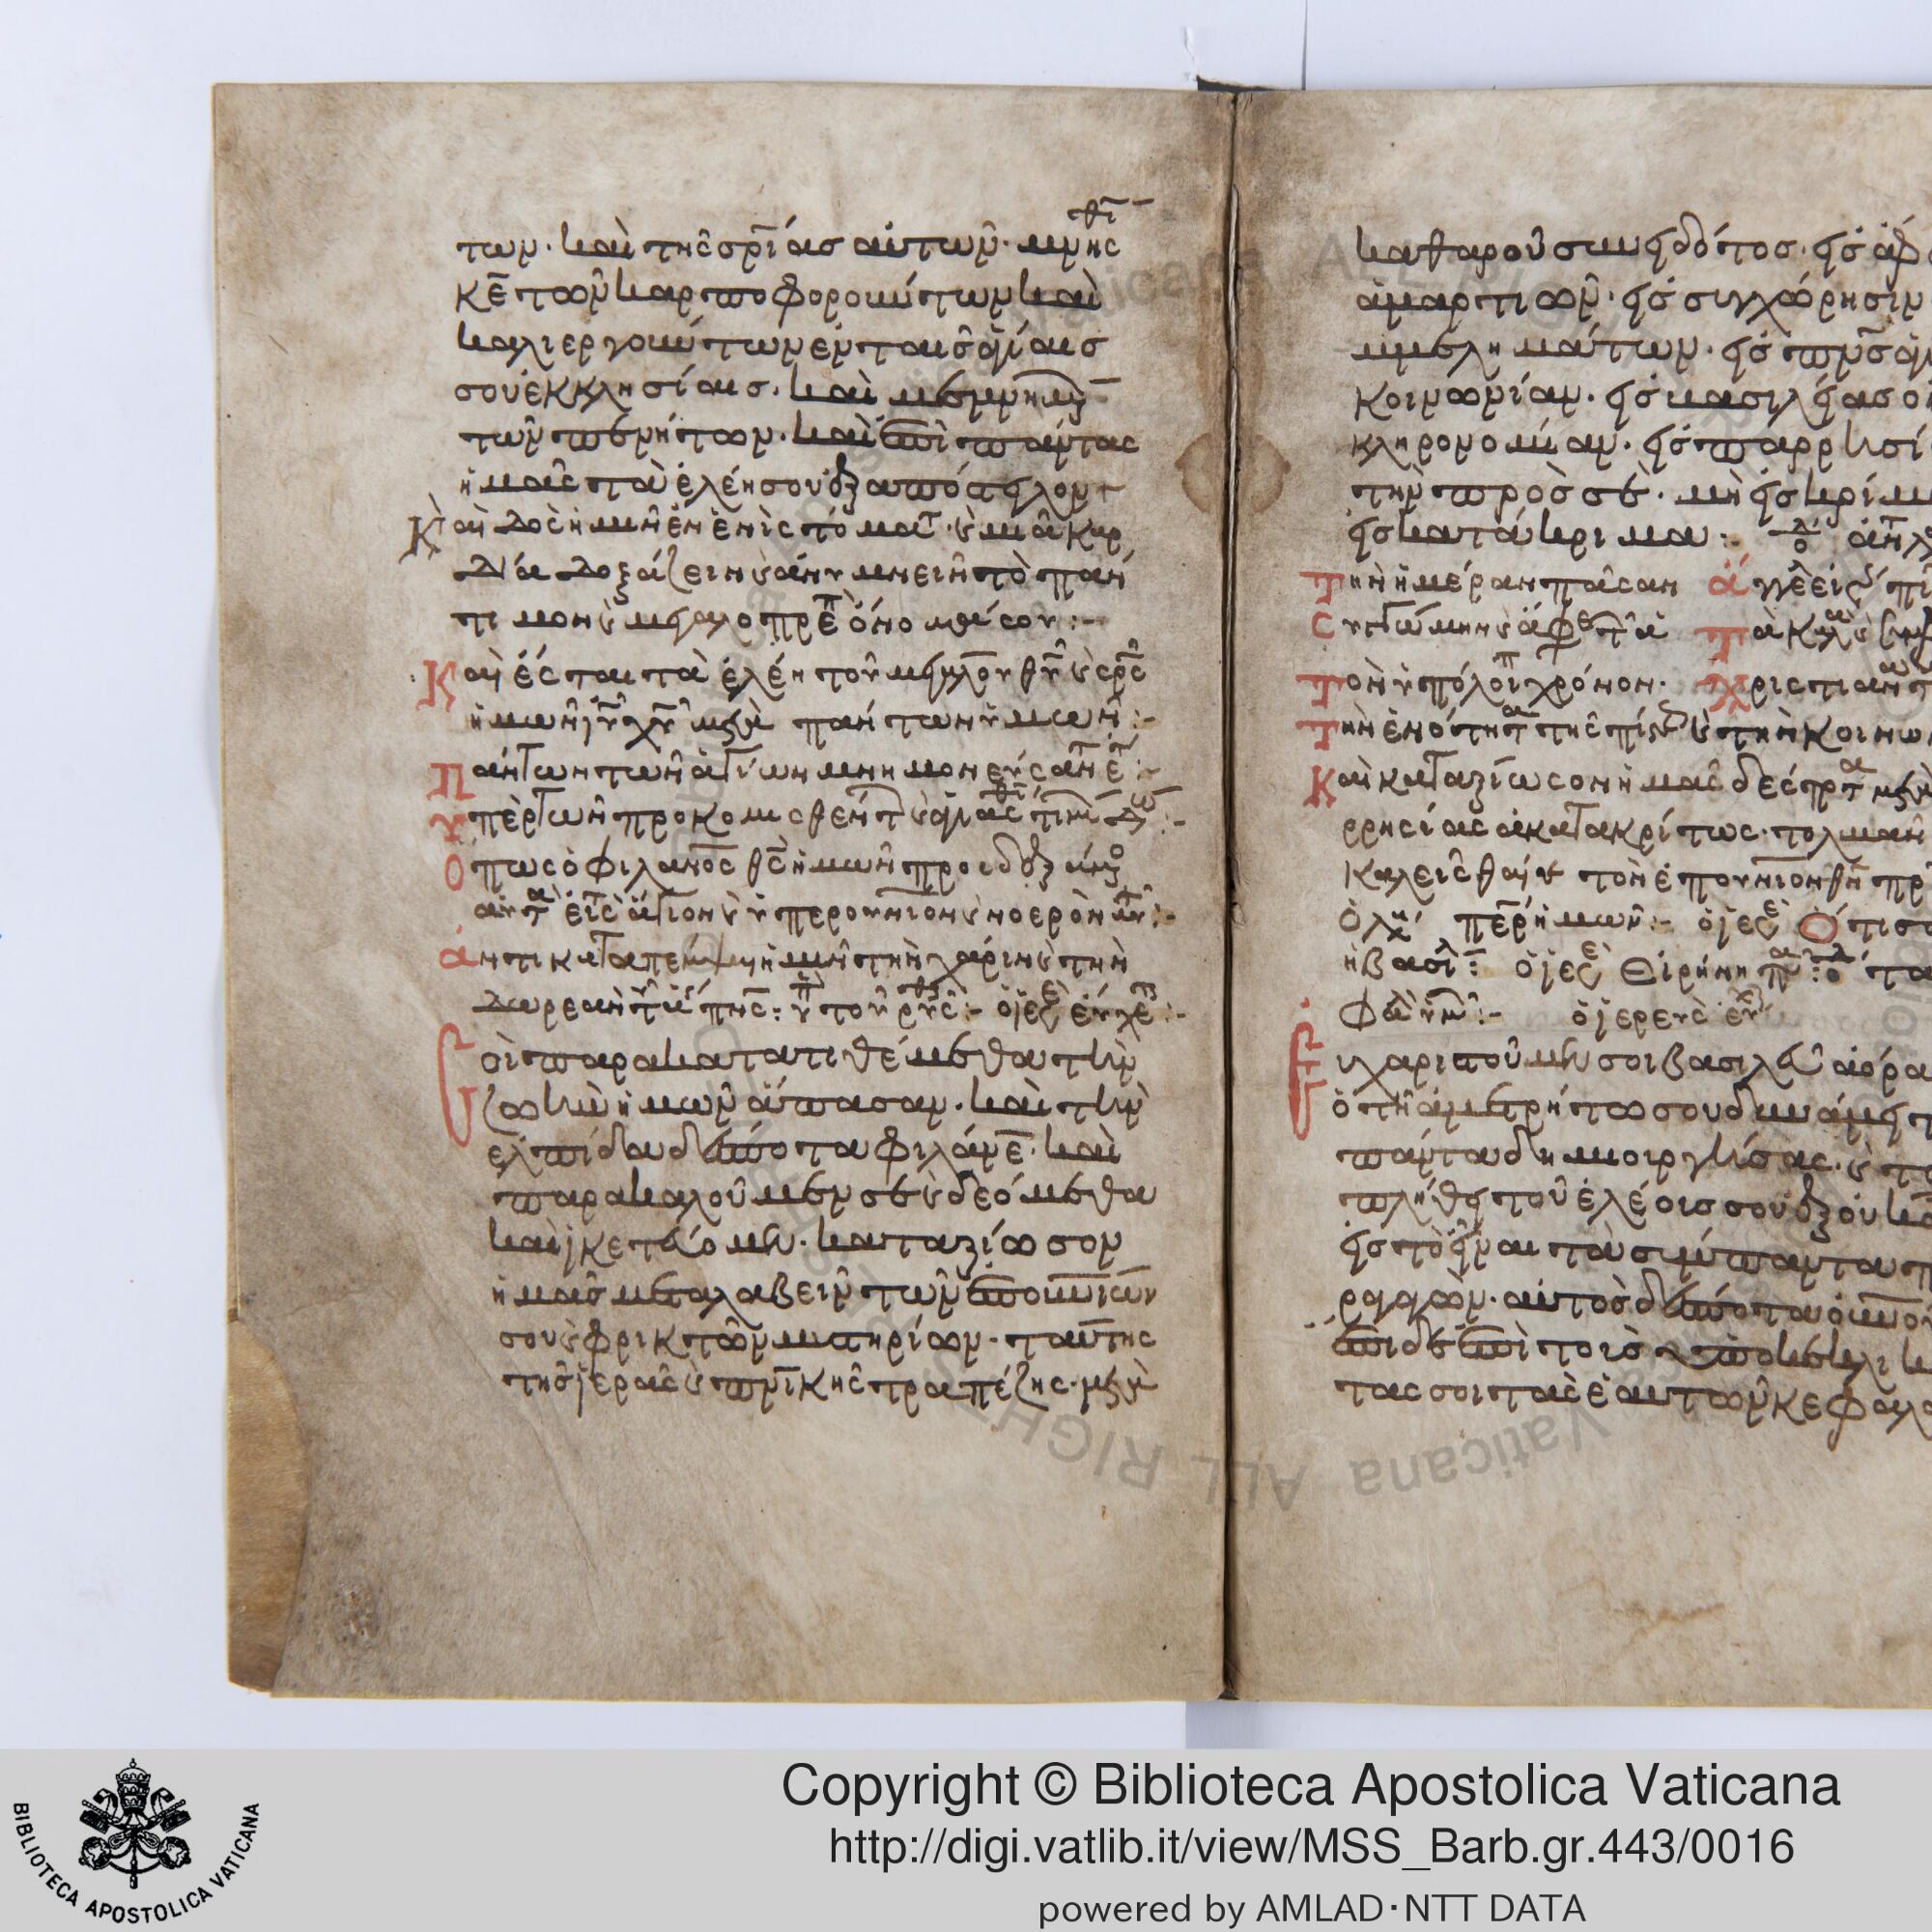 των· καὶ τῆς σρίας αὐτῶν· μνήσθτι
κε τῶν καρποφορούντων καὶ
καλιεργούντων ἐν ταῖς ἁγίαις
σου ἐκκλησίαις· καὶ μεμνημ
τῶν πενήτων· καὶ ἐπὶ πάντας
ἡμᾶς τὰ ἐλέη σου ἐξαπόστειλον
Καὶ δὸς ἡμῖν ἐν ἑνὶ στόματ καὶ μιᾶ καρ
δία δοξάζειν καὶ ἀνυμνεῖν τὸ πάν
τιμον καὶ μεγαλοπρεπ ὄνομά σου:-
Καὶ ἔσται τὰ ἐλέη τοῦ μεγάλου θυ καὶ σρς
ἡμῶν ιυ χυ μετὰ πάντων ὑμῶν:-
Πάντων τῶν ἁγίων μνημονεύσαντ ἔτ:-
Ὑπὲρ τῶν προκομισθέντ καὶ ἁγιασθ τιμ δώ:-
Ὅπως ὁ φιλανος θς ἡμῶν προσδεξάμο
αὐτὰ εἰς τὸ ἅγιον καὶ ὑπερουνιον καὶ νοερὸν αὐτ:-
ἀντικαταπέμψη ἡμῖν τὴν χάριν καὶ τὴν
δωρεὰν τοῦ ἁ πνς: ὑπ τοῦ ρυσθ:- ὁ ἱε εὔχε:-
Σοὶ παρακατατιθέμεθα τὴν
ζωὴν ἡμῶν ἅπασαν· καὶ τὴν
ἐλπίδα δέσποτα φιλάνε· καὶ
παρακαλοῦμέν σε καὶ δεόμεθα
καὶ ἱκετεύομεν· καταξίωσον
ἡμᾶς μεταλαβεῖν τῶν ἐπουνίων
σου καὶ φρικτῶν μυστηρίων· ταύτης
τῆς ἱερᾶς καὶ πνικῆς τραπέζης· μετὰ
καθαροῦ συνειδότος· εἰς ἄφ
ἁμαρτιῶν· εἰς συγχώρησιν
πλημμελημάτων· εἰς πνς ἁγ
κοινωνίαν· εἰς βασιλείας ο
κληρονομίαν· εἰς παρρησί
τὴν πρὸς σέ· μὴ εἰς κρίμα
εἰς κατάκριμα:-
Τὴν ἡμέραν πᾶσαν ἄγγε εἰρ πι
Συγγνώμην καὶ ἄφε τῶ ἁ Τὰ καλὰ καὶ συμφ
Τὸν ὑπόλοιπ χρόνον· Χριστιανὰ τ
Τὴν ἑνότητα τῆς πίστ καὶ τὴν κοινω
Καὶ καταξίωσον ἡμᾶς δέσποτα μετὰ
ρρησίας ἀκατακρίτως· τολμᾶν
καλεῖσθαί σε τὸν ἐπουνιον θν πρ
Ὁ λα περ ἡμῶν:- ὁ ἱε Ὅτι σ
ἡ βασιλ: ὁ ἱε Εἰρήνη πᾶ: ὁ λ τα
φαλ ὑμ:- ὁ ἱερεὺς εὐ
Εὐχαριστοῦμέν σοι βασιλεῦ ἀόρα
ὁ τῆ ἀμετρήτω σου δυνάμει τ
πάντα δημιουργήσας· καὶ τ
πλήθει τοῦ ἐλέους σου ἐξ οὐκ
εἰς τὸ εἶναι τὰ σύμπαντα π
ραγαγών· αὐτὸς δέσποτα οὐνο
ἔπιδε ἐπὶ τοὺς ὑποκεκλικ
τας σοι τὰς ἑαυτῶν κεφαλ
BIBLIOTECA APOSTOLICA VATICANA
Copyright © Biblioteca Apostolica Vaticana
http://digi.vatlib.it/view/MSS_Barb.gr.443/0016
powered by AMLAD·NTT DATA